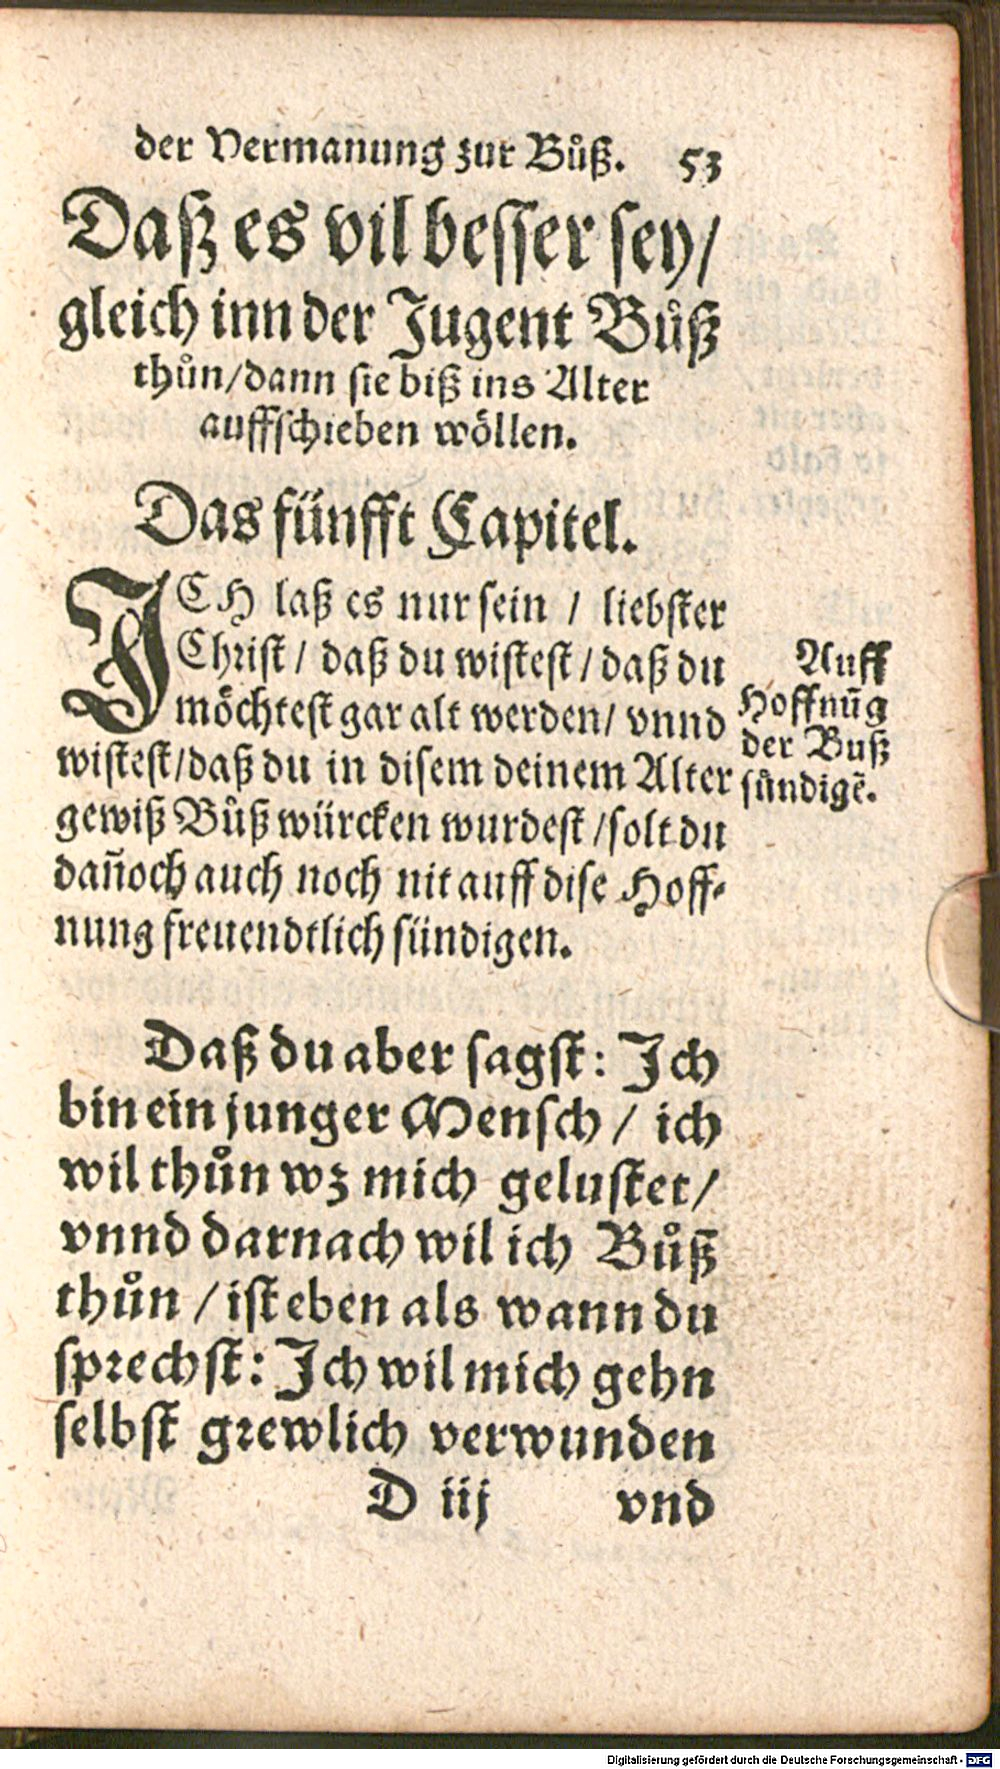 der Vermanung zur Bůß. 53
Daß es vil besser sey/
gleich inn der Jugent Bůß
thůn/dann sie biß ins Alter
auffschieben wöllen.
Das fünfft Capitel.
ICH laß es nur sein / liebster
Christ / daß du wistest / daß du
möchtest gar alt werden/ vnnd
wistest/daß du in disem deinem Alter
gewiß Bůß würcken wurdest /solt du
dan̄och auch noch nit auff dise Hoff-
nung freuendtlich sündigen.
Auff
Hoffnūg
der Buß
sündigē.
Daß du aber sagst: Ich
bin ein junger Mensch / ich
wil thůn wz mich gelustet/
vnnd darnach wil ich Bůß
thůn / ist eben als wann du
sprechst: Ich wil mich gehn
selbst grewlich verwunden
D iij vnd
Digitalisierung gefördert durch die Deutsche Forschungsgemeinschaft - DFG